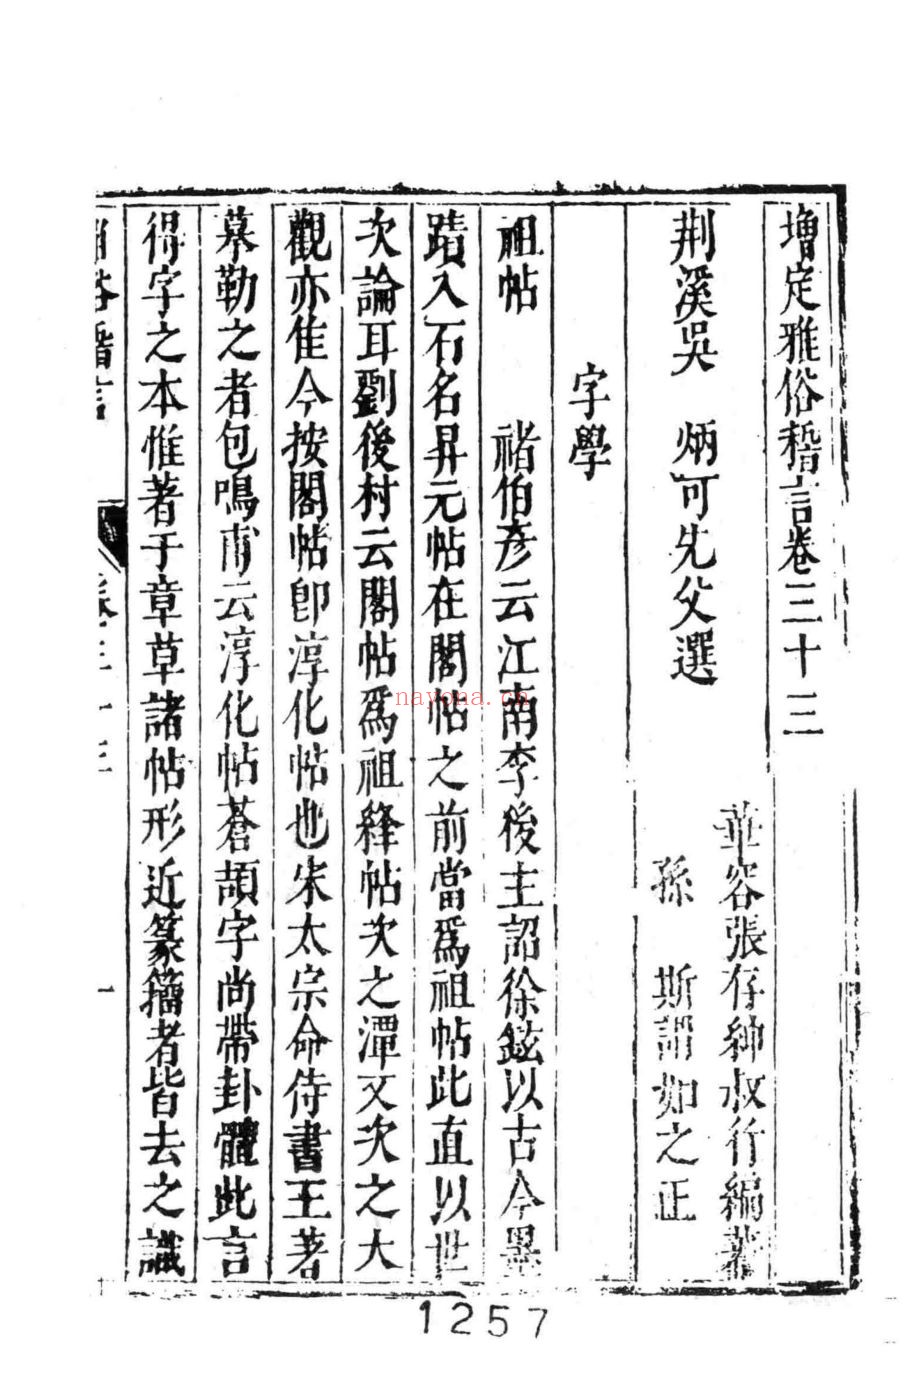 增定雅俗稽言卷三十三
華容張存紳叔行編著
荆溪吳　炳可先父選
孫　斯 如之正
字學
祖帖　　褚伯彥云江南李後主詔徐鉉以古今墨
蹟入石名昇元帖在閣帖之前當爲祖帖此直以世
次論耳劉後村云閣帖爲祖絳帖次之潭又次之大
觀亦隹今按閣帖卽淳化帖也宋太宗命侍書王著
摹勒之者包鳴甫云淳化帖蒼頡字尚帶卦體此言
得字之本惟著于章草諸帖形近篆籀者皆去之識
俗稽言
卷三十三
一
nayona.cn
1257